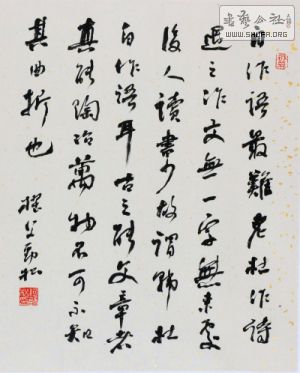 自作語最難老杜作詩
退之作文無一字無来處
後人讀書少故謂韓杜
自作語耳古之能文章者
真能陶冶萬物不可不知
其曲折也
www.SHUFA.ORG